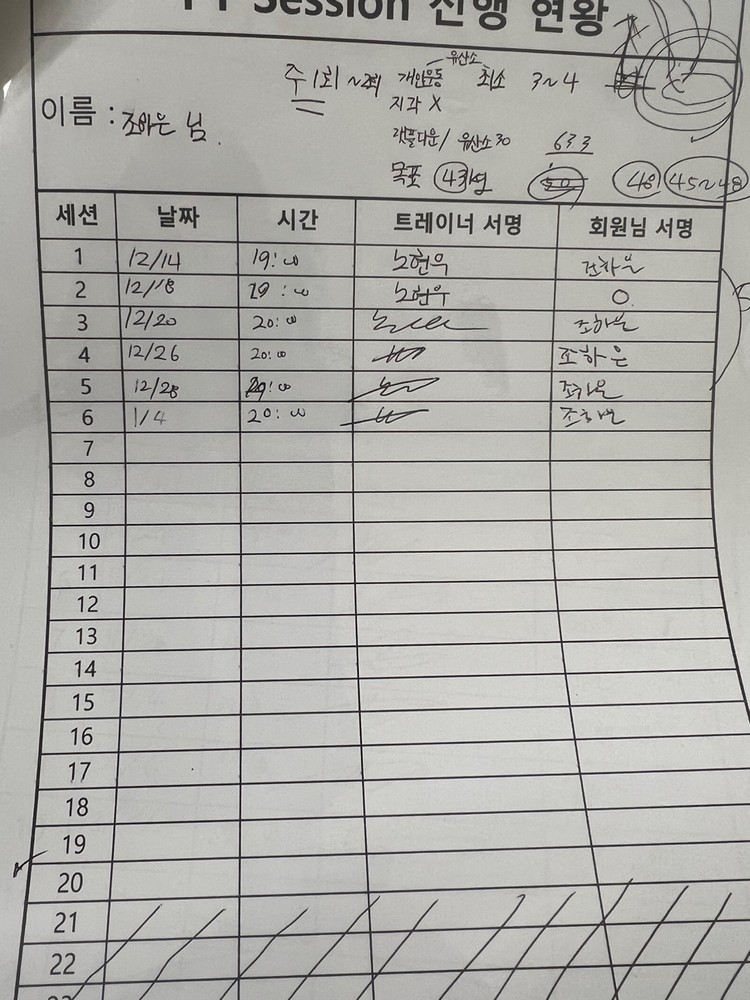 PT Session 진행 현황
유산소
주 1회 ~ 2회 개인운동 최소 3~4
지각 X
이름 : 조하은 님.
유산소 30 633
목표 48 45~48
세션 날짜 시간 트레이너 서명 회원님 서명
1 12/14 19:00 노현우
2 12/18 19:00 노현우 O
3 12/20 20:00 조하은
4 12/26 20:00 조하은
5 12/28 조하은
6 1/4 20:00 조하은
7
8
9
10
11
12
13
14
15
16
17
18
19
20
21
22
23